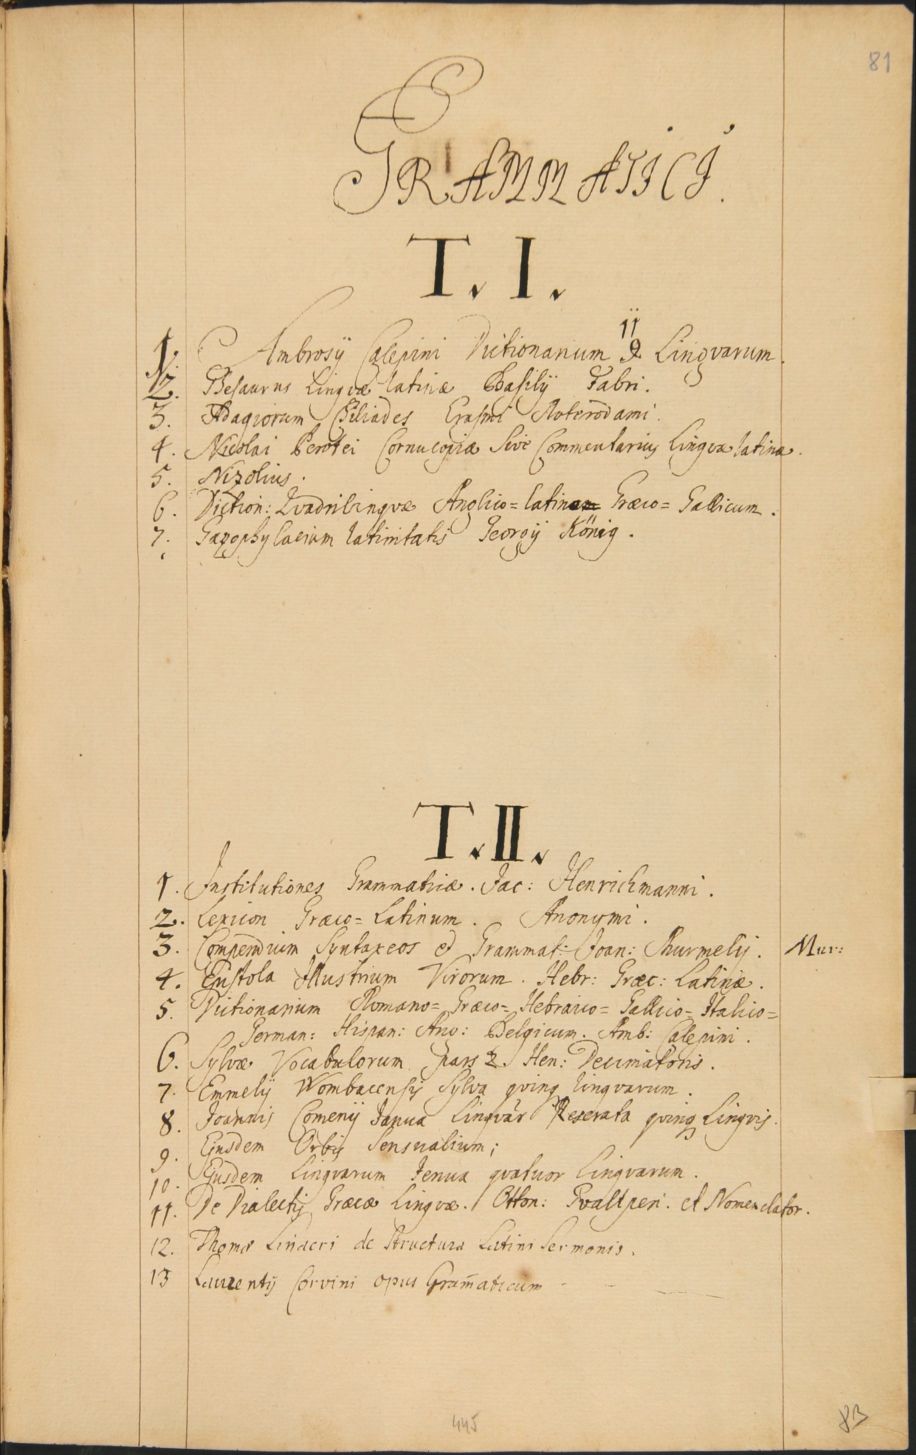 81
GRAMMATICI.
T. I.
11
1. Ambrosij Calepini Dictionarium 9. Lingvarum.
2. Thesaurus Lingvæ latinæ Basilij Fabri.
3. Adagiorum Chiliades Erasmi Roterodami.
4. Nicolai Perotei Cornucopiæ sive Commentarius Lingvæ latinæ.
5. Nizolius.
6. Diction: Qvadrilingvæ Anglico=latino Græco=Gallicum.
7. Gazophylacium latinitatis Georgij König.
T. II.
1. Institutiones Grammaticæ. Jac: Henrichmanni.
2. Lexicon Græco=Latinum. Anonymi.
3. Compendium Syntaxeos et Grammat: Joan: Murmelij. Mur:
4. Epistola Illustrium Virorum. Hebr: Græc: Latinæ.
5. Dictionarium Romano=Græco=Hebraico=Gallico=Italico=
German: Hispan: Ang: Belgicum. Amb: Calepini.
6. Sylvæ Vocabulorum pars 2. Hen: Decimatoris.
7. Emmelij Wombacensis Sylva qvinq lingvarum.
8. Joannis Comenij Janua Lingvar Reserata qvinq Lingvis.
9. Ejusdem Orbis Sensualium;
10. Ejusdem Lingvarum Jenua qvatuor lingvarum.
11. De Dialectis Græcæ Lingvæ. Otton: Gvaltperi. et Nomenclator.
12. Thomæ Linacri de Structura Latini Sermonis.
13 Laurentij Corvini opus Gram̃aticum
445
83